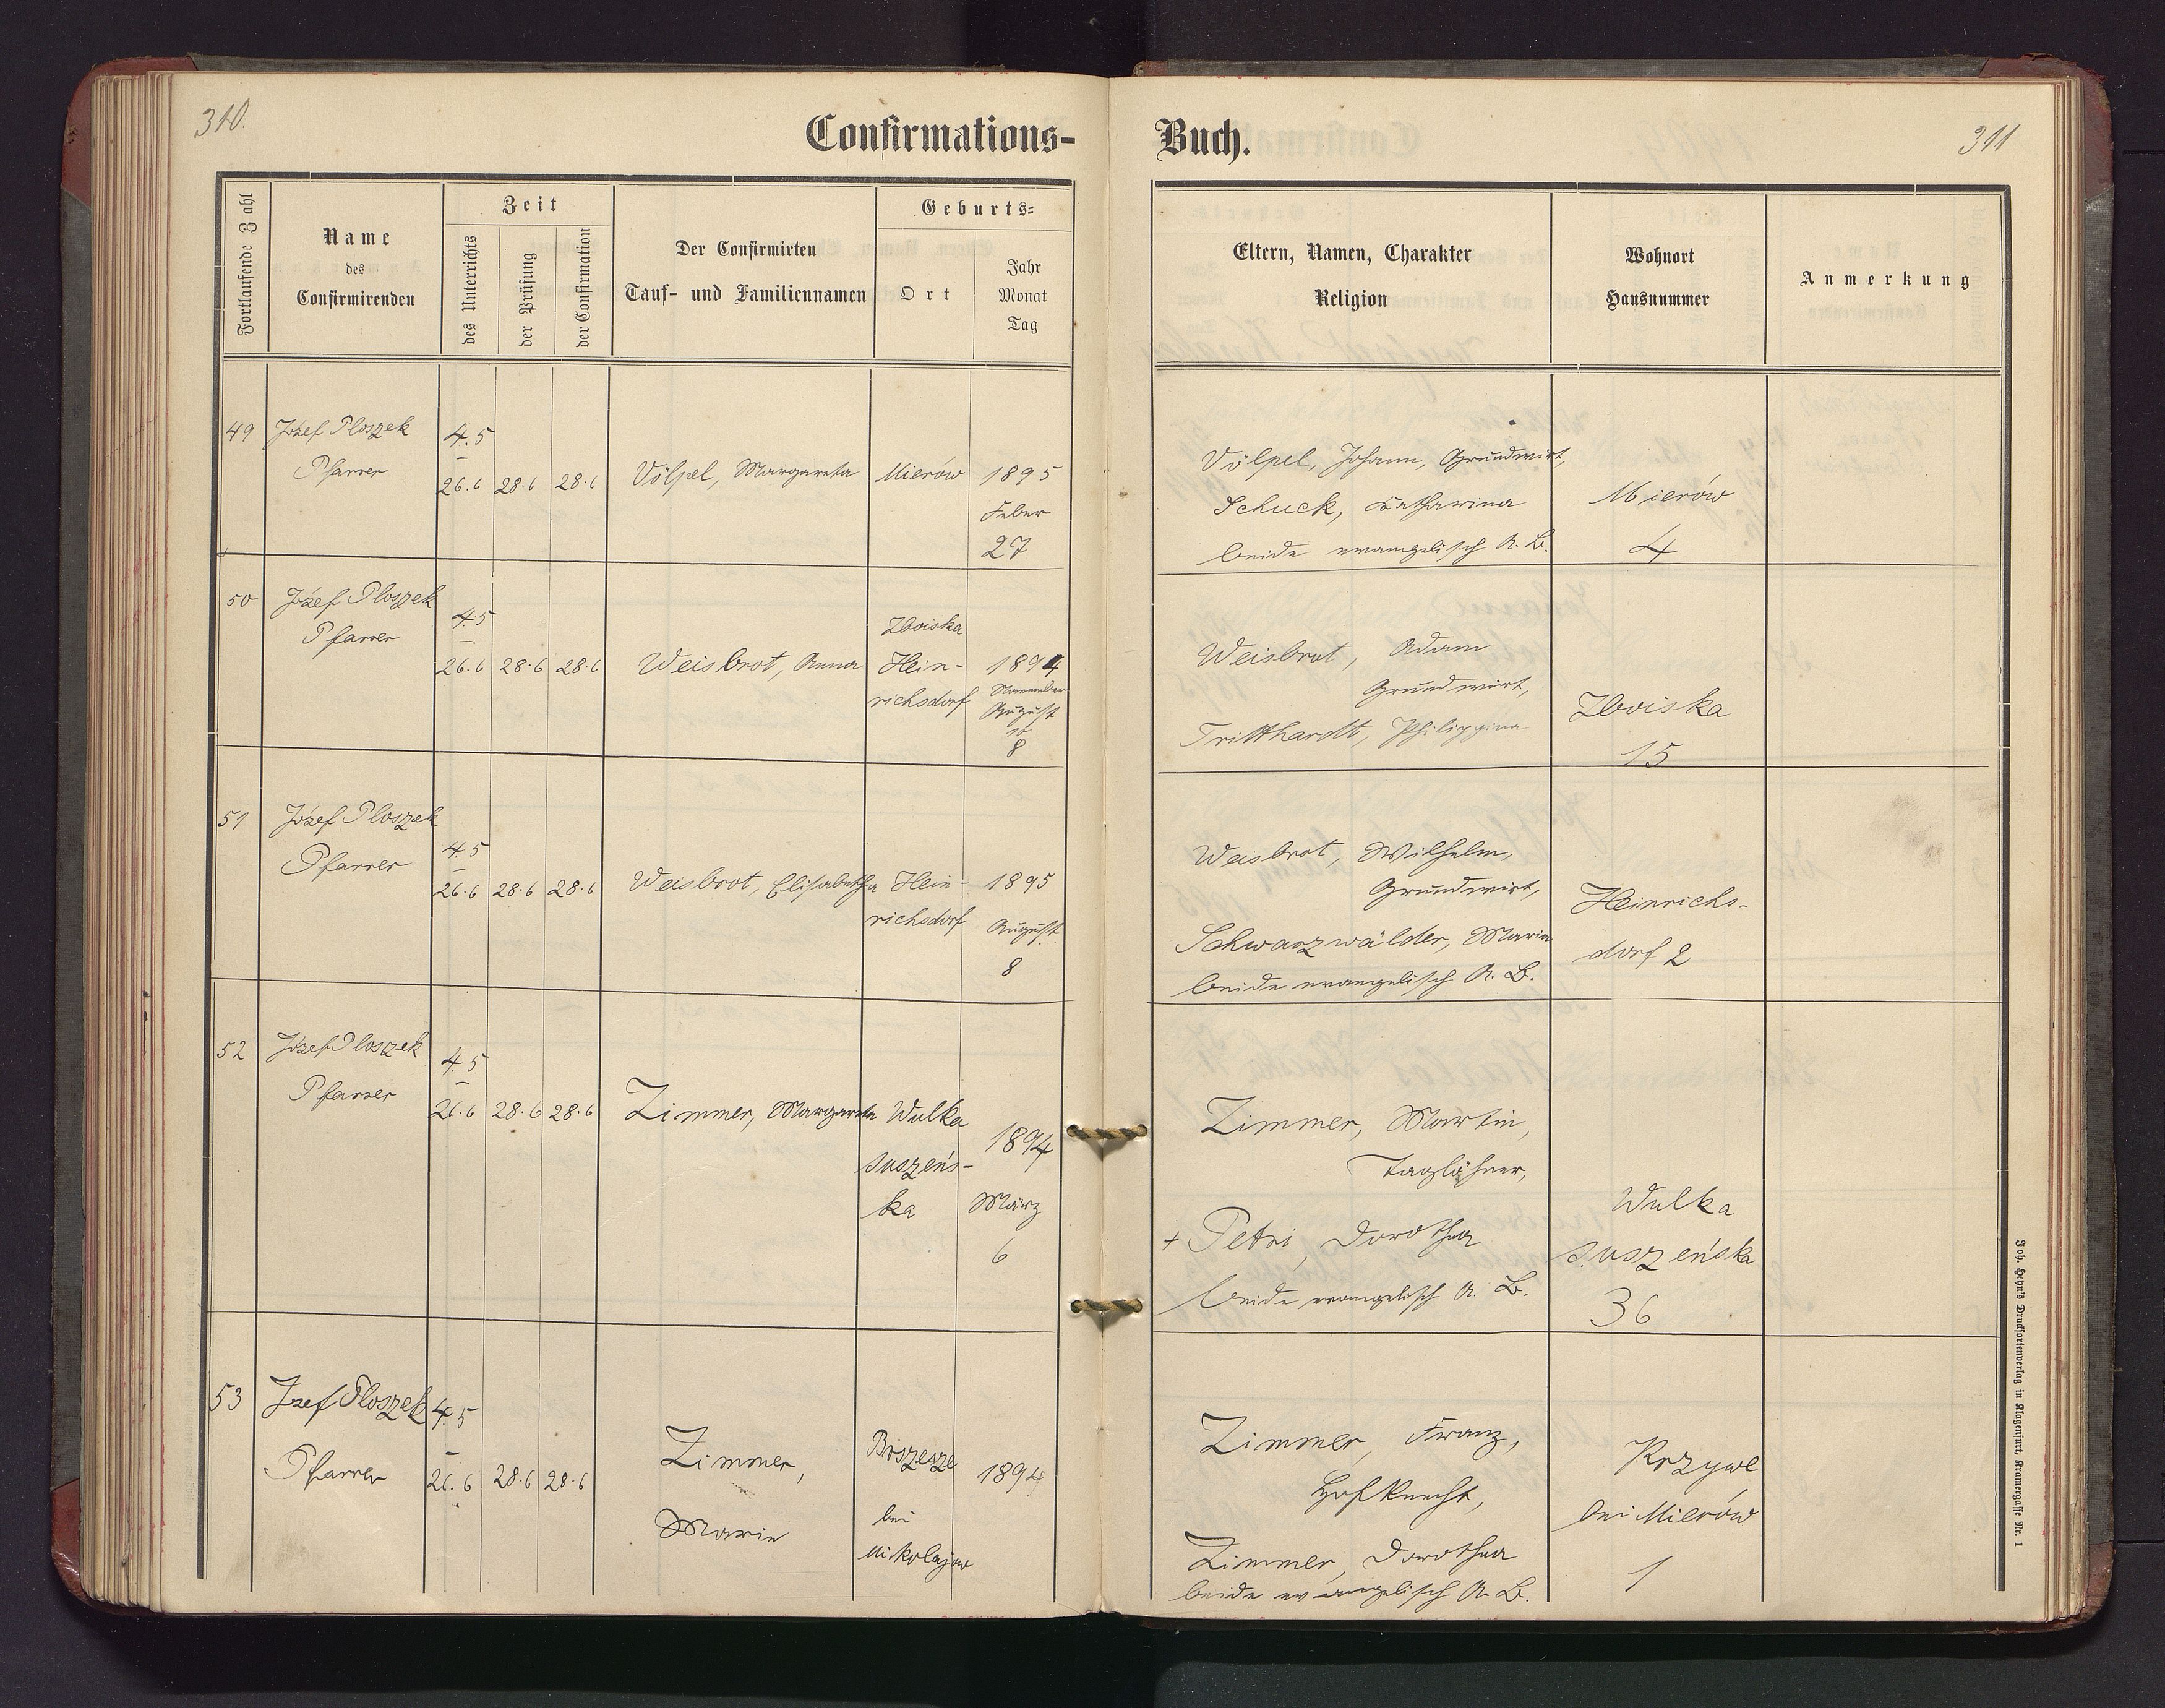 310.
Confirmations-
Buch.
311
Fortlaufende Zahl
Name
des
Confirmirenden
Zeit
des Unterrichts
der Prüfung
der Confirmation
Der Confirmirten
Tauf- und Familiennamen
Geburts-
Ort
Jahr
Monat
Tag
Eltern, Namen, Charakter
Religion
Wohnort
Hausnummer
Anmerkung
49
Józef Ploszek
Pfarrer
4.5
–
26.6
28.6
28.6
Völpel, Margareta
Mierów
1895
Feber
27
Völpel, Johann, Grundwirt,
Schuck, Katharina
beide evangelisch A. B.
Mierów
4
50
Józef Ploszek
Pfarrer
4.5
–
26.6
28.6
28.6
Weisbrot, Anna
Zboiska
Hein-
richsdorf
1894
November
August
8
Weisbrot, Adam
Grundwirt,
Tritthardt, Philippina
Zboiska
15
51
Józef Ploszek
Pfarrer
4.5
–
26.6
28.6
28.6
Weisbrot, Elisabetha
Hein-
richsdorf
1895
August
8
Weisbrot, Wilhelm,
Grundwirt,
Schwarzwälder, Maria
beide evangelisch A. B.
Heinrichs-
dorf 2
52
Józef Ploszek
Pfarrer
4.5
–
26.6
28.6
28.6
Zimmer, Margareta
Wulka
suszeńs-
ka
1894
März
6
Zimmer, Martin,
Taglöhner,
+ Petri, Dorothea
beide evangelisch A. B.
Wulka
suszeńska
36
53
Józef Ploszek
Pfarrer
4.5
–
26.6
28.6
28.6
Zimmer,
Marie
bei
Mikolajow
1894
Zimmer, Franz,
Hofknecht,
Zimmer, Dorothea
beide evangelisch A. B.
Krzywe
bei Mierów
1
Joh. Heyn's Drucksortenverlag in Klagenfurt, Kramergasse Nr. 1